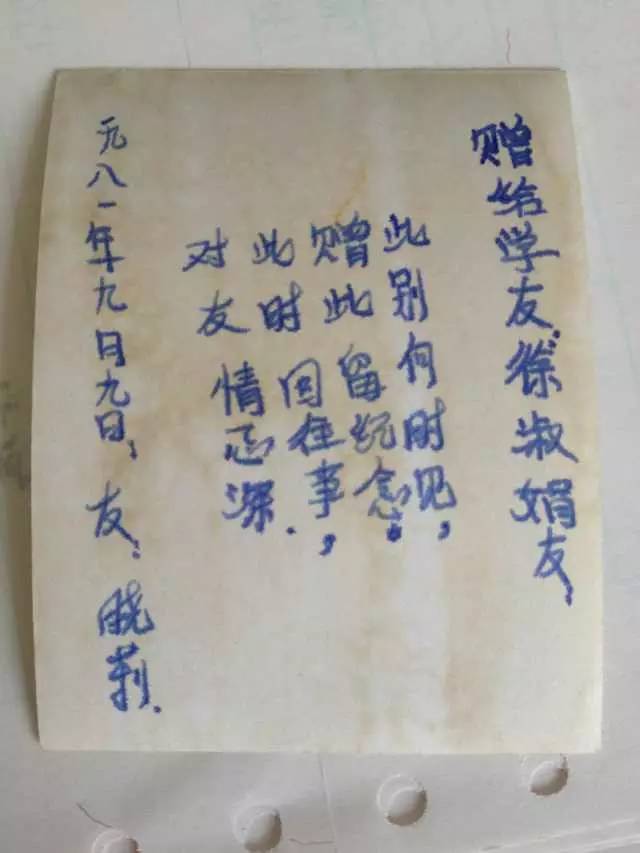 赠给学友:徐淑娟友:
此别何时见,
赠此留纪念.
此时回往事,
对友情意深.
一九八一年九月九日, 友: 晓莉.